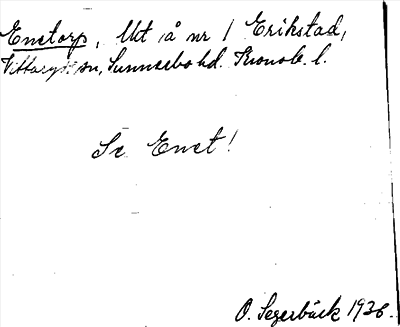 Enetorp, Utt å nr 1 Erikstad,
Vittaryds sn, Sunnerbo hd. Kronob. l.
Se Enet!
O. Segerbäck 1936.